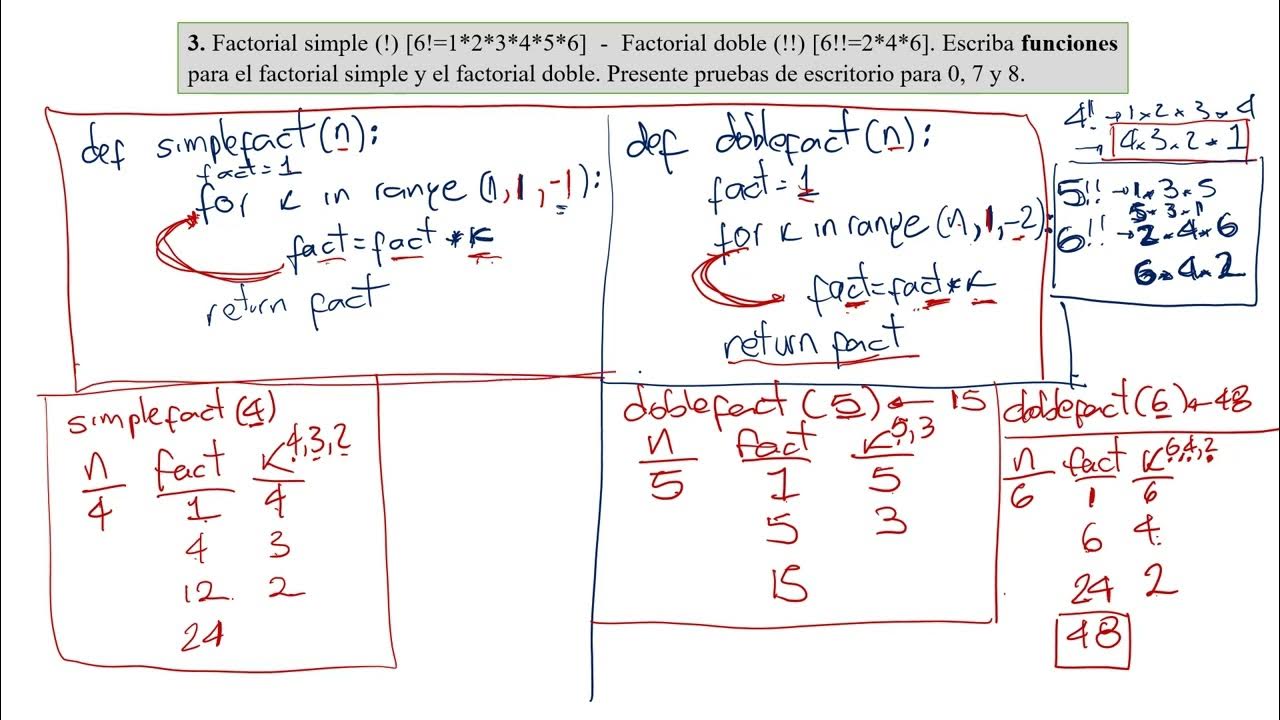 3. Factorial simple (!) [6!=1*2*3*4*5*6] - Factorial doble (!!) [6!!=2*4*6]. Escriba funciones
para el factorial simple y el factorial doble. Presente pruebas de escritorio para 0, 7 y 8.
def simplefact(n):
fact=1
for k in range (n,1,-1):
fact=fact*k
return fact
def doblefact(n):
fact=1
for k in range(n,1,-2):
fact=fact*k
return fact
4! → 1x2x3x4
→ 4x3x2*1
5!! → 1x3x5
5x3x1
6!! → 2x4x6
6x4x2
simplefact(4)
n fact k 4,3,2
4 1 4
4 3
12 2
24
doblefact(5) ← 15
n fact k 5,3
5 1 5
5 3
15
doblefact(6) ← 48
n fact k 6,4,2
6 1 6
6 4
24 2
48